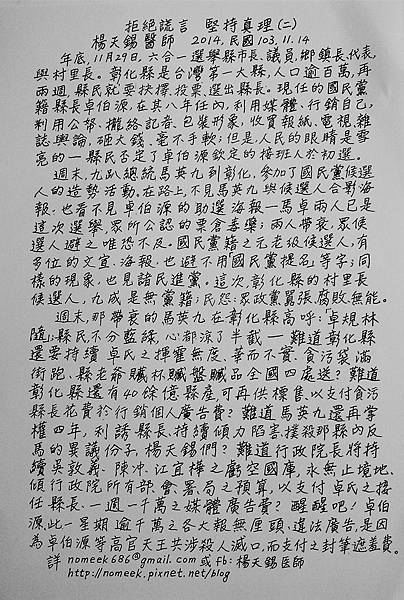 拒絕謊言 堅持真理(二)
楊天錫醫師 2014,民國103,11.14
年底,11月29日,六合一選舉縣市長、議員,鄉鎮長、代表,
與村里長。彰化縣是台灣第一大縣,人口逾百萬,再
兩週,縣民就要抉擇,投票,選出縣長。現任的國民黨
籍縣長卓伯源,在其八年任內,利用媒體、行銷自己,
利用公帑、攏絡記者、包裝形象,收買報紙、電視、雜
誌、輿論,砸大錢、毫不手軟;但是,人民的眼睛是雪
亮的—縣民否定了卓伯源欽定的接班人於初選。
週末,九趴總統馬英九到彰化,參加了國民黨候選
人的造勢活動。在路上,不見馬英九與候選人合影海
報,也看不見卓伯源的助選海報—馬卓兩人已是
這次選舉,眾所公認的票倉毒藥;兩人帶衰,眾候
選人避之唯恐不及。國民黨籍之元老級候選人,有
多位的文宣、海報,也避不用「國民黨提名」等字;同
樣的現象,也見諸民進黨。這次,彰化縣的村里長
候選人,九成是無黨籍;民怨:眾政黨囂張,腐敗無能。
週末,那帶衰的馬英九在彰化縣高呼:「卓規林
隨」;縣民,不分藍綠,心都涼了半截—難道彰化縣
還要持續卓氏之揮霍無度、華而不實、貪污袋滿
街跑,縣老爺贓杯贓盤贓品全國四處送?難道
彰化縣還有40餘億縣產,可再供標售,以支付貪污
縣長花費於行銷個人廣告費?難道馬英九還再掌
權四年,利誘縣長,持續傾力陷害、撲殺那縣內反
馬的異議份子,楊天錫們?難道行政院長將持
續吳敦義、陳冲、江宜樺之虧空國庫,永無止境地、
傾行政院所有部、會、署、局之預算,以支付卓氏之接
任縣長、一週一千萬之媒體廣告費?醒醒吧!卓伯
源,此一星期逾千萬之各大報無厘頭、違法廣告,是因
為卓伯源等高官天王共涉殺人滅口,而支付之封筆遮羞費。
詳 nomeek686@gmail.com 或 fb:楊天錫医師
http://nomeek.pixnet.net/blog